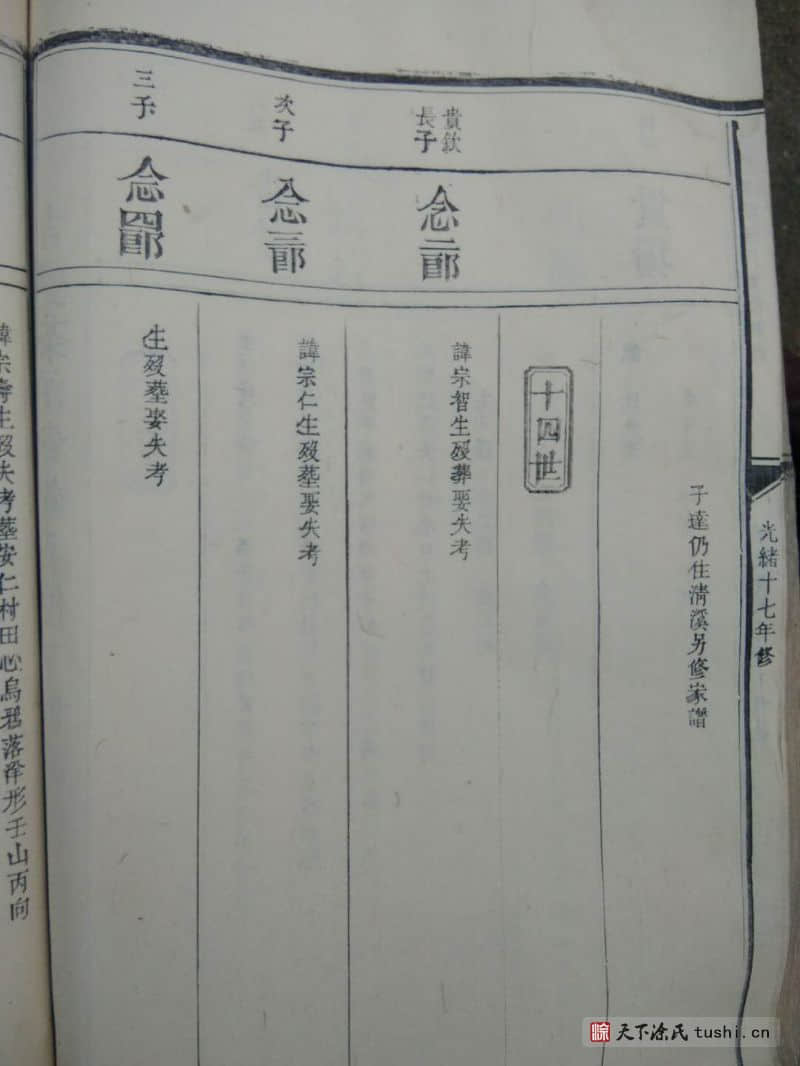 光緒十七年修
子達仍住清溪另修家譜
十四世
貴欽
長子
念二郎
諱宗智生殁葬娶失考
次子
念三郎
諱宗仁生殁塟娶失考
三子
念四郎
生殁塟娶失考
諱宗壽生殁失考塟安仁村田心烏鴉落洋形壬山丙向
天下涂氏 tushi.cn